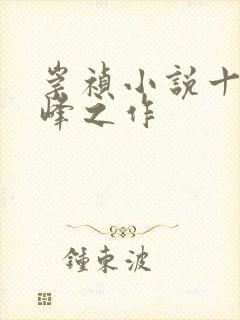 崇禎小說十
峰之作
鍾東波